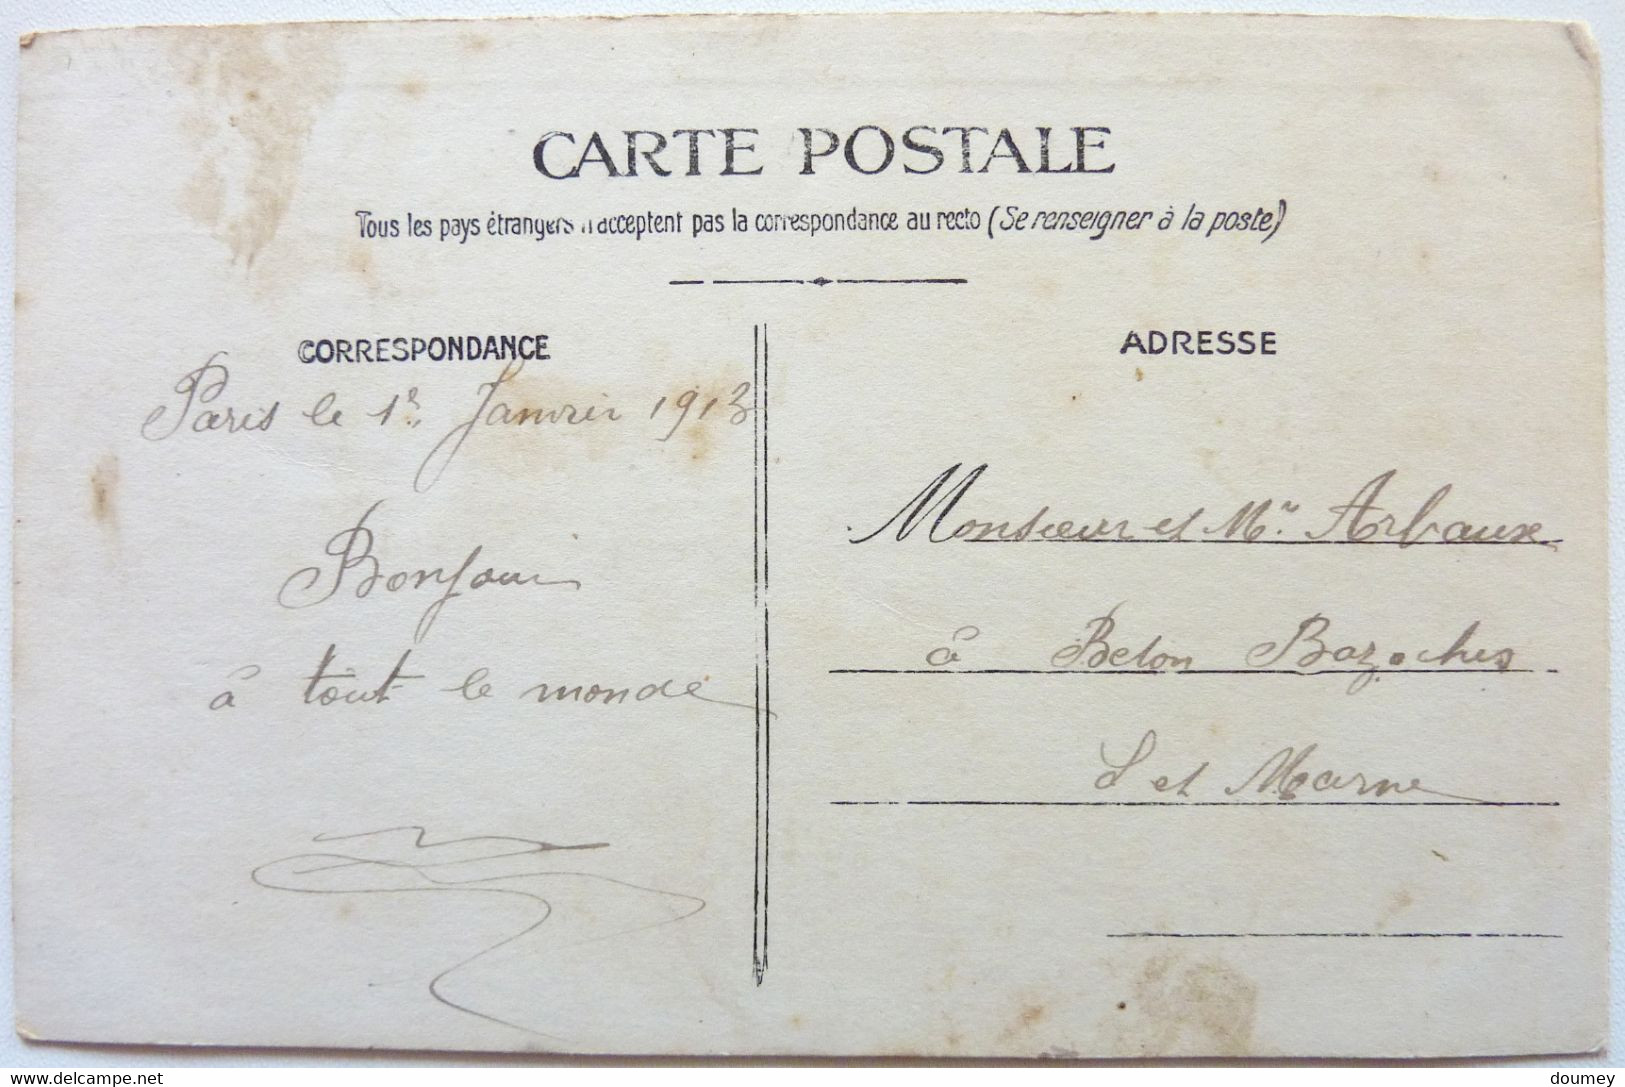 CARTE POSTALE
Tous les pays étrangers n'acceptent pas la correspondance au recto (Se renseigner à la poste)
CORRESPONDANCE
Paris le 1er Janvier 1913
Bonjour
à tout le monde
ADRESSE
Monsieur et Me Arbaux
à Beton Bazoches
S et Marne
www.delcampe.net
doumey